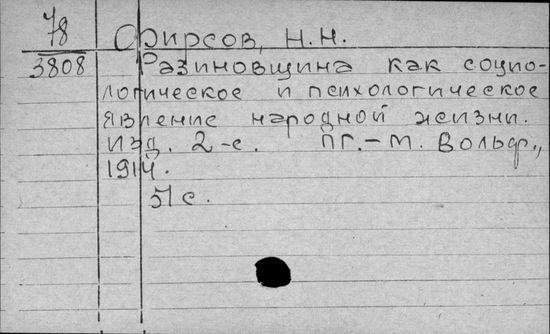 78
3808
Фирсов, Н.Н.
Разиновщина как социо-
логическое и психологическое
явление народной жизни.
Изд. 2-е. ПГ.-М. Вольф.,
1914.
51 с.